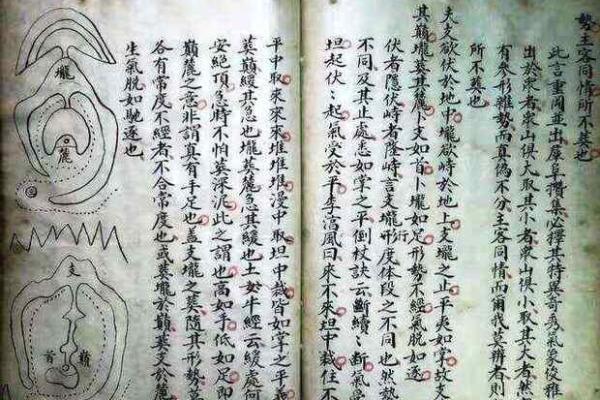 勢主客同情所不葬也
此言重岡並出羣阜攢集必擇其特異奇秀氣象俊雅
出於眾者眾山俱大取其小者眾山俱小取其大者然
有參形雜勢而真偽不分主客同情而爾我莫辨者則
所不葬也
夫支欲伏於地中壠欲峙於地上支壠之止平夷如掌故支
其巔壠葬其麓卜支如首卜壠如足形勢不經氣脫如逐
伏者隱伏峙者隆峙言支壠行形度體段之不同也然勢
不同及其止處悉如掌之平倒杖訣云斷續〻斷氣受
坦起伏〻起氣受於平李淳風曰來不來坦中裁住不
平中取來來來堆堆堆漫中取坦中裁皆如掌之平
葬巔緩其急也壠葬麓急其緩也土牛經云緩處何
安絕頂急時不怕葬深泥此之謂也高如手低如足即
巔麓之意非謂真有手足也蓋支壠之葬隨其形勢莫
各有常度不經者不合常度也或葬壠於巔葬支於麓
生氣脫如馳逐也
壠
麓
支
首
巔